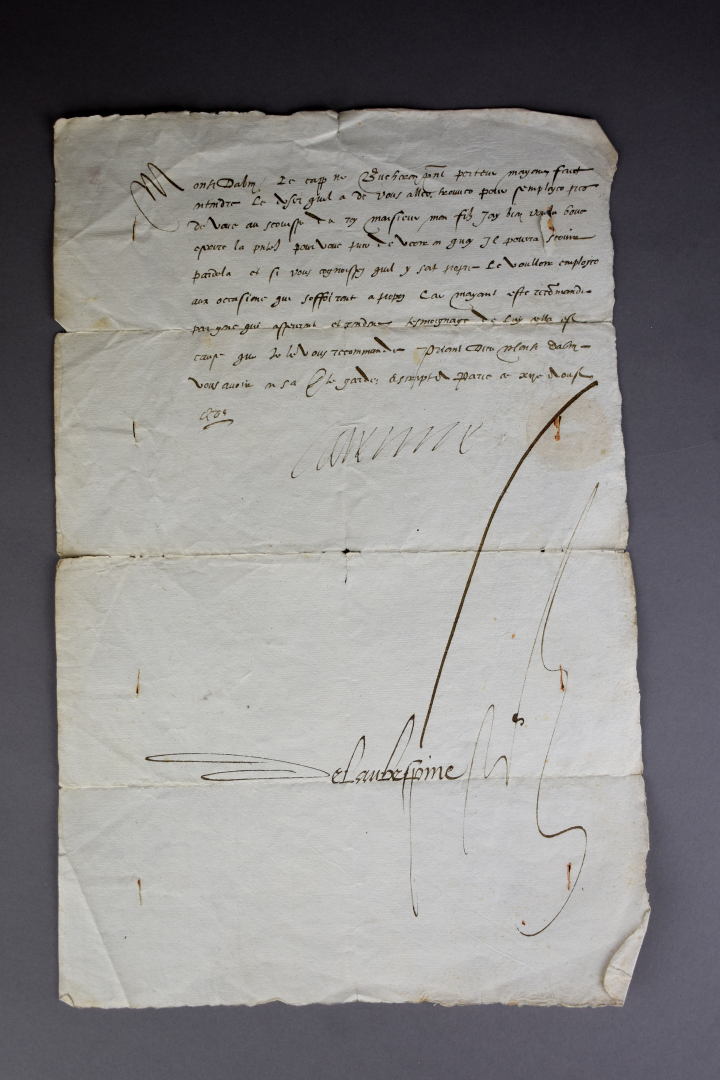 Monsr Dalin Le cappne porteur mayant faict
entendre Le desir quil a de vous aller trouver pour semployer pres
de vous au service du roy monsieur mon filz Jay bien voulu vous
escrire la pnte pour vous prier de veoir en quoy Il pourra servir
pardela et si vous cognoissez quil y soit propre Le voulloir employer
aux occasions qui soffriront a propos Car mayant esté recommandé
par gens qui asseurent et rendent tesmoignage de luy cella est
cause que Je le vous recommande Priant Dieu Monsr dalin
vous avoir en sa ste garde escript a Paris ce xije daoust
Caterine
Delaubespine